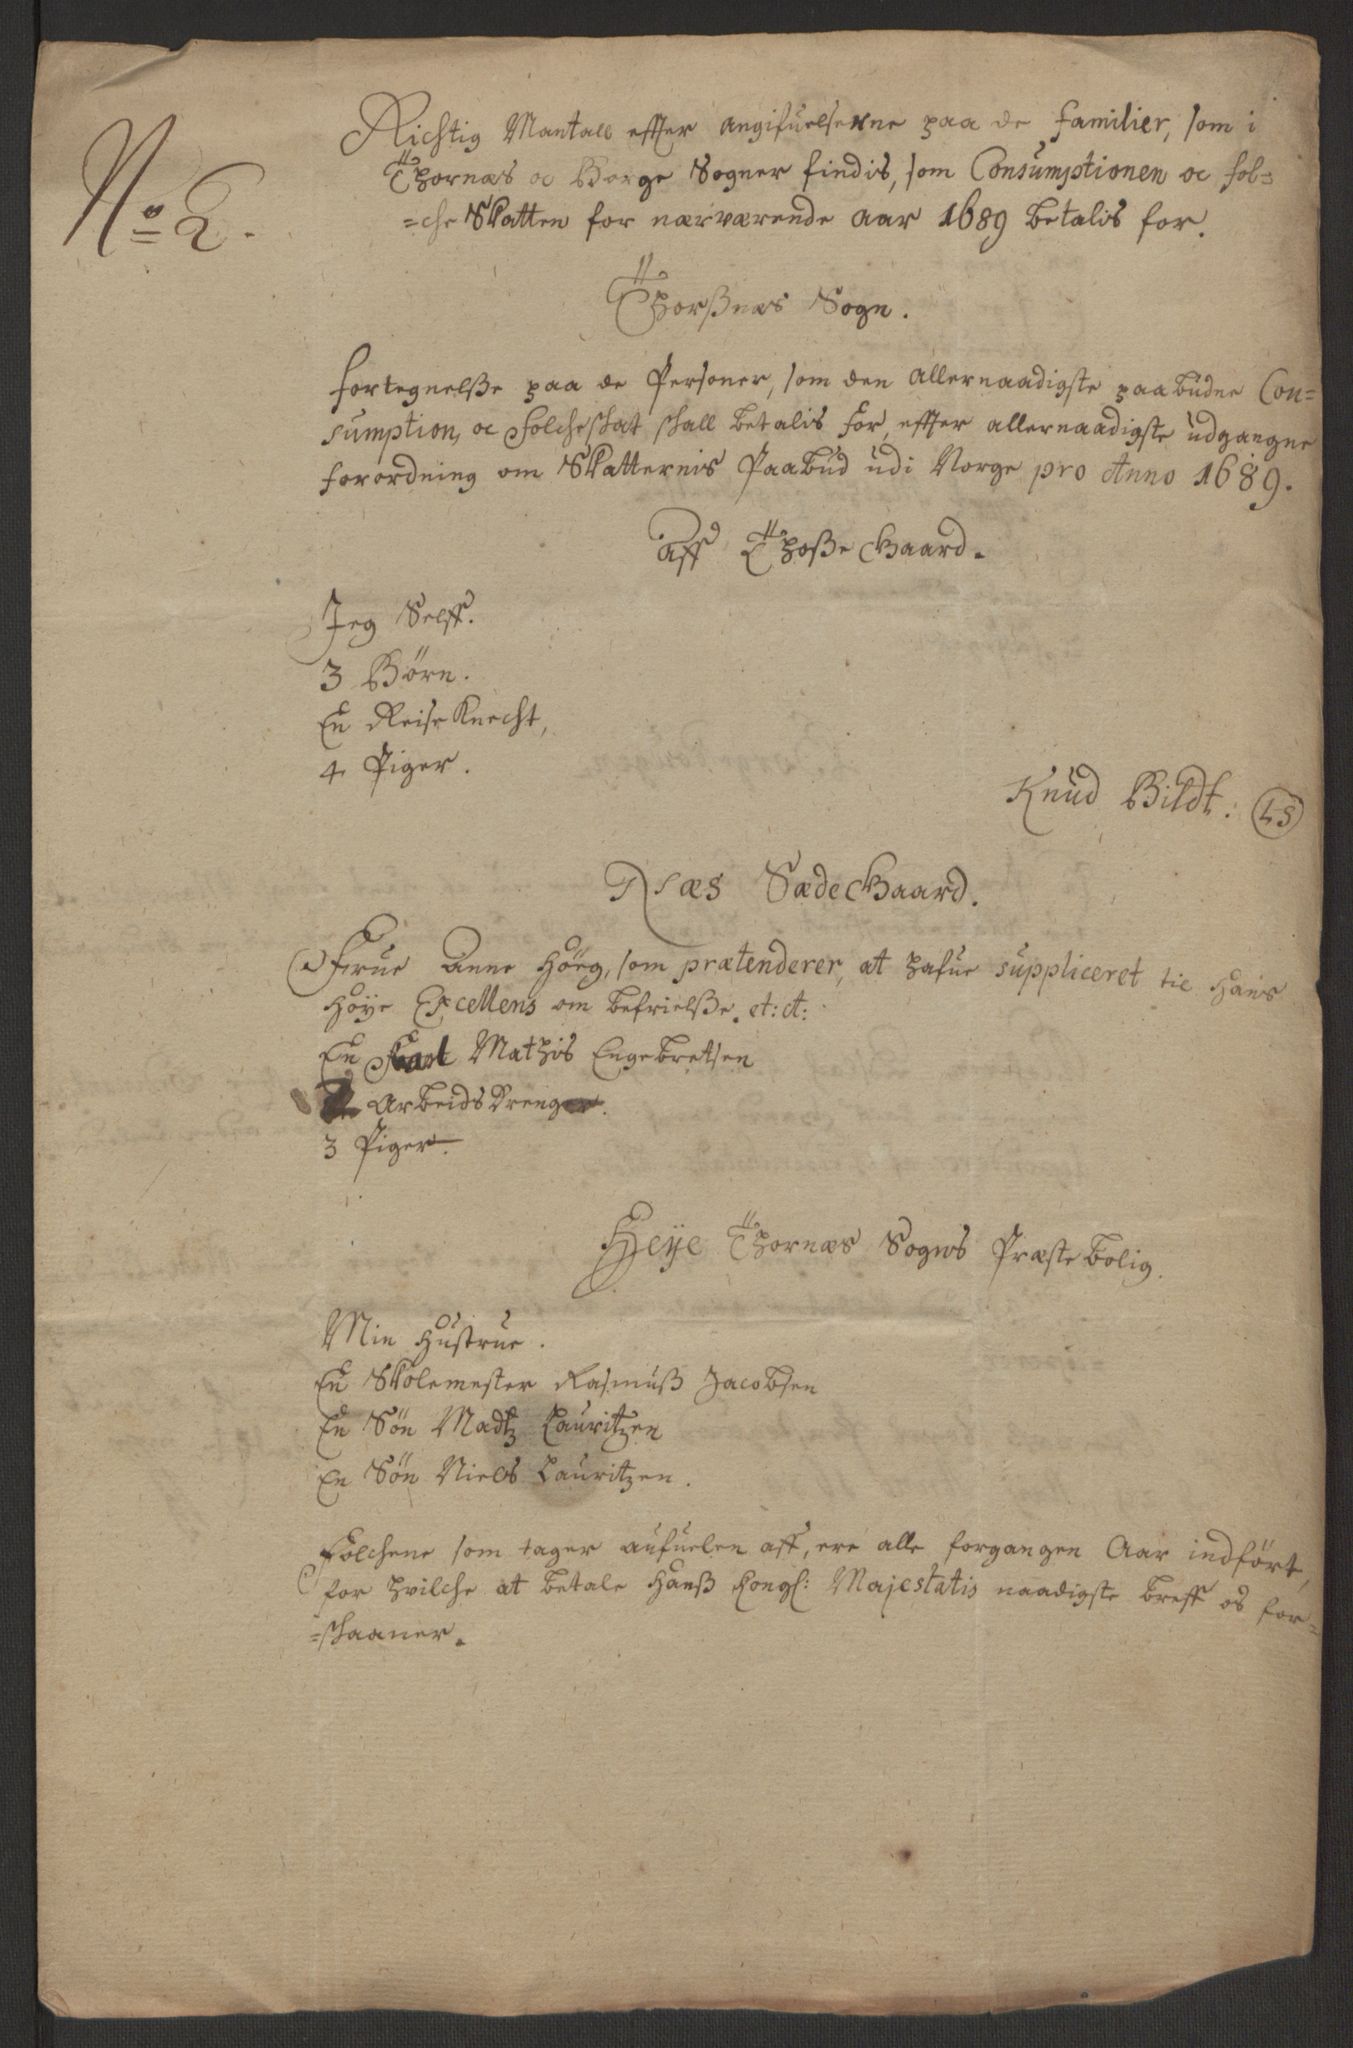 No 2.
Richtig Mantall effter angifuelserne paa de familier, som i
Thornæs oc Borge Sogner findis, som Consumptionen oc fol=
=che Skatten for nærværende aar 1689 betalis for.
Thorßnæs Sogn.
Fortegnelße paa de Personer, som den allernaadigste paabudne Con=
sumption, oc Folcheskat skall betalis for, effter allernaadigste udgangne
forordning om Skatternis Paabud udi Norge pro Anno 1689.
Aff Thoße Gaard.
Jeg Selff.
3 Børn.
En Reise Knecht,
4 Piger.
Knud Bildt. LS
Næs Sæde Gaard.
Frue Anne Høeg, som prætenderer, at hafue suppliceret til Hans
Høye Excellens om befrielße. et: ct:
En Karl Mathis Engebretsen
Arbeids Drenger.
3 Piger.
Heye Thornæs Sogns Præste bolig.
Min Hustrue.
En Skolemester Rasmuß Jacobsen
En Søn Madtz Lauritzen
En Søn Niels Lauritzen.
Folchene som tager aufuelen aff, ere alle forgangen Aar indført,
for hvilche at betale Hanß Kongl: Majestatis naadigste breff os for=
=skaaner.